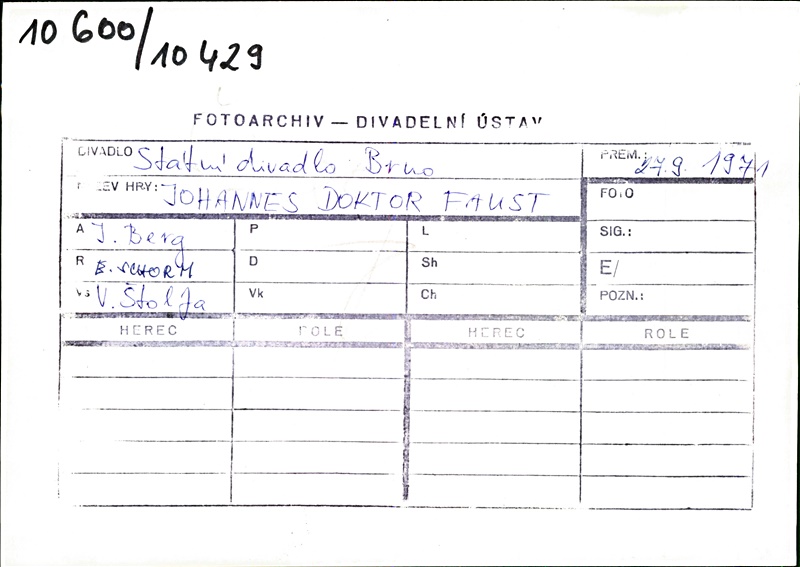 10 600/10 429
FOTOARCHIV — DIVADELNÍ ÚSTAV
DIVADLO Státní divadlo Brno
PREM.: 27.9. 1971
NÁZEV HRY: JOHANNES DOKTOR FAUST
FOTO
A J. Berg
P
L
SIG.:
R E. SCHORM
D
Sh
E/
Vs V. Štolfa
Vk
Ch
POZN.:
HEREC ROLE HEREC ROLE